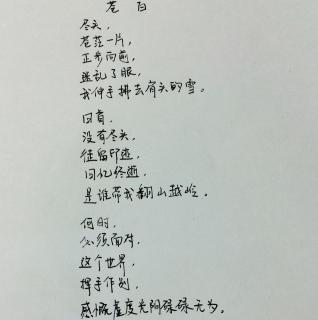 苍白
尽头，
苍茫一片，
正步向前，
迷乱了眼，
我伸手拂去肩头的雪。
回首，
没有尽头，
徒留印迹，
回忆终逝，
是谁带我翻山越岭。
何时，
必须面对，
这个世界，
挥手作别，
感慨虚度光阴碌碌无为。